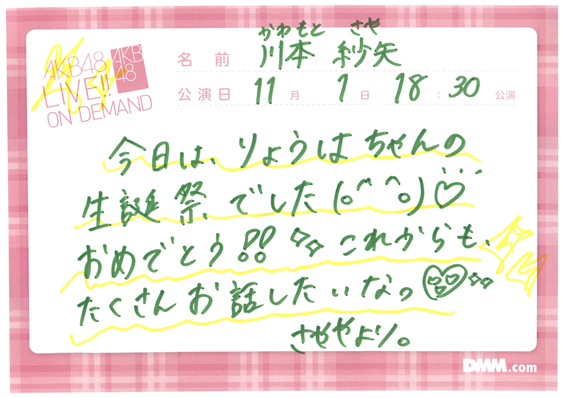 AKB48
LIVE!!
ON DEMAND
AKB
48
かわもと さや
名前 川本 紗矢
公演日 11月 1日 18:30公演
今日は、りょうはちゃんの
生誕祭でした(｡^ ^｡)♡
おめでとう!! これからも、
たくさんお話したいなっ
さややより。
DMM.com